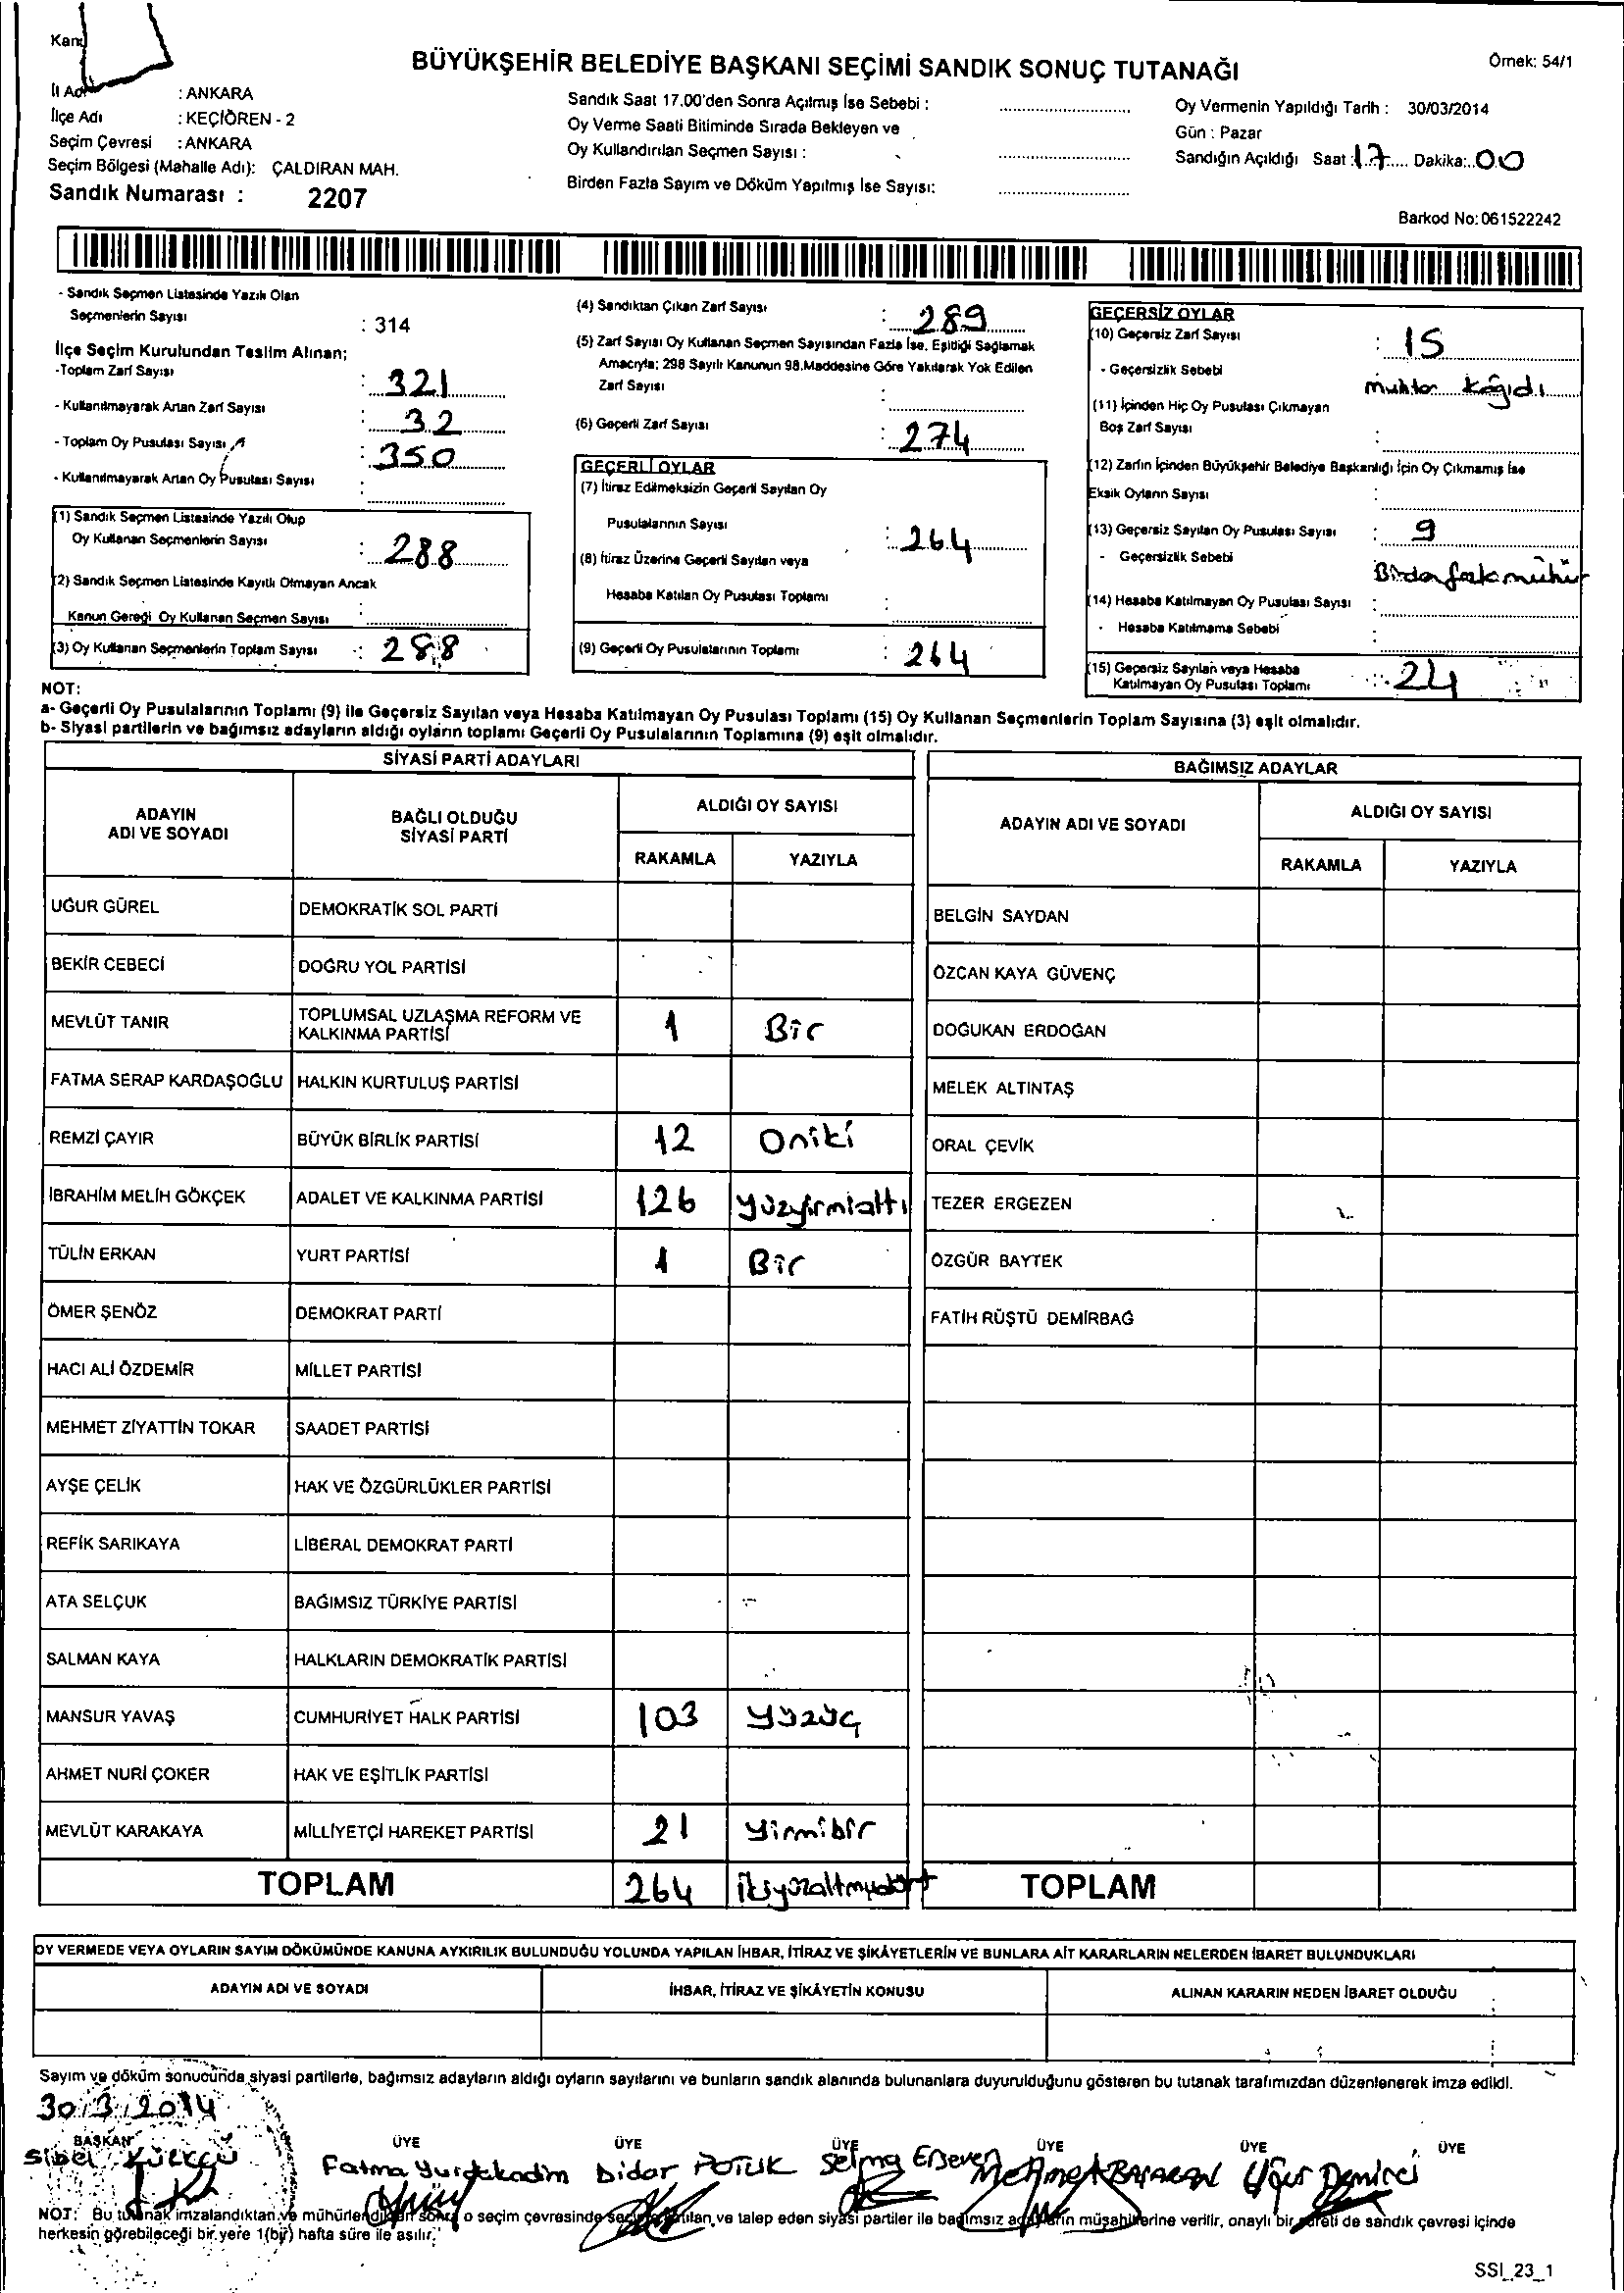 BÜYÜKŞEHİR BELEDİYE BAŞKANI SEÇİMİ SANDIK SONUÇ TUTANAĞI
Örnek: 54/1
İl Adı : ANKARA
İlçe Adı : KEÇİÖREN - 2
Seçim Çevresi : ANKARA
Seçim Bölgesi (Mahalle Adı): ÇALDIRAN MAH.
Sandık Numarası : 2207
Sandık Saat 17.00'den Sonra Açılmış İse Sebebi :
Oy Verme Saati Bitiminde Sırada Bekleyen ve
Oy Kullandırılan Seçmen Sayısı :
Birden Fazla Sayım ve Döküm Yapılmış İse Sayısı:
Oy Vermenin Yapıldığı Tarih : 30/03/2014
Gün : Pazar
Sandığın Açıldığı Saat : 17 Dakika: 00
Barkod No: 061522242
- Sandık Seçmen Listesinde Yazılı Olan
Seçmenlerin Sayısı : 314
İlçe Seçim Kurulundan Teslim Alınan;
-Toplam Zarf Sayısı : 321
- Kullanılmayarak Artan Zarf Sayısı : 32
- Toplam Oy Pusulası Sayısı : 350
- Kullanılmayarak Artan Oy Pusulası Sayısı :
(1) Sandık Seçmen Listesinde Yazılı Olup
Oy Kullanan Seçmenlerin Sayısı : 288
(2) Sandık Seçmen Listesinde Kayıtlı Olmayan Ancak
Kanun Gereği Oy Kullanan Seçmen Sayısı :
(3) Oy Kullanan Seçmenlerin Toplam Sayısı : 288
(4) Sandıktan Çıkan Zarf Sayısı : 289
(5) Zarf Sayısı Oy Kullanan Seçmen Sayısından Fazla İse, Eşitliği Sağlamak
Amacıyla; 298 Sayılı Kanunun 98.Maddesine Göre Yakılarak Yok Edilen
Zarf Sayısı :
(6) Geçerli Zarf Sayısı : 274
GEÇERLİ OYLAR
(7) İtiraz Edilmeksizin Geçerli Sayılan Oy
Pusulalarının Sayısı : 264
(8) İtiraz Üzerine Geçerli Sayılan veya
Hesaba Katılan Oy Pusulası Toplamı :
(9) Geçerli Oy Pusulalarının Toplamı : 264
GEÇERSİZ OYLAR
(10) Geçersiz Zarf Sayısı : 15
- Geçersizlik Sebebi muhtar kağıdı
(11) İçinden Hiç Oy Pusulası Çıkmayan
Boş Zarf Sayısı :
(12) Zarfın İçinden Büyükşehir Belediye Başkanlığı İçin Oy Çıkmamış İse
Eksik Oyların Sayısı :
(13) Geçersiz Sayılan Oy Pusulası Sayısı : 9
- Geçersizlik Sebebi
(14) Hesaba Katılmayan Oy Pusulası Sayısı :
- Hesaba Katılmama Sebebi :
(15) Geçersiz Sayılan veya Hesaba
Katılmayan Oy Pusulası Toplamı : 24
NOT:
a- Geçerli Oy Pusulalarının Toplamı (9) ile Geçersiz Sayılan veya Hesaba Katılmayan Oy Pusulası Toplamı (15) Oy Kullanan Seçmenlerin Toplam Sayısına (3) eşit olmalıdır.
b- Siyasi partilerin ve bağımsız adayların aldığı oyların toplamı Geçerli Oy Pusulalarının Toplamına (9) eşit olmalıdır.
SİYASİ PARTİ ADAYLARI
ADAYIN ADI VE SOYADI
BAĞLI OLDUĞU SİYASİ PARTİ
ALDIĞI OY SAYISI
RAKAMLA YAZIYLA
UĞUR GÜREL DEMOKRATİK SOL PARTİ
BEKİR CEBECİ DOĞRU YOL PARTİSİ
MEVLÜT TANIR TOPLUMSAL UZLAŞMA REFORM VE KALKINMA PARTİSİ 1 Bir
FATMA SERAP KARDAŞOĞLU HALKIN KURTULUŞ PARTİSİ
REMZİ ÇAYIR BÜYÜK BİRLİK PARTİSİ 12 Oniki
İBRAHİM MELİH GÖKÇEK ADALET VE KALKINMA PARTİSİ 126 yüzyirmialtı
TÜLİN ERKAN YURT PARTİSİ 1 Bir
ÖMER ŞENÖZ DEMOKRAT PARTİ
HACI ALİ ÖZDEMİR MİLLET PARTİSİ
MEHMET ZİYATTİN TOKAR SAADET PARTİSİ
AYŞE ÇELİK HAK VE ÖZGÜRLÜKLER PARTİSİ
REFİK SARIKAYA LİBERAL DEMOKRAT PARTİ
ATA SELÇUK BAĞIMSIZ TÜRKİYE PARTİSİ
SALMAN KAYA HALKLARIN DEMOKRATİK PARTİSİ
MANSUR YAVAŞ CUMHURİYET HALK PARTİSİ 103 yüzüç
AHMET NURİ ÇOKER HAK VE EŞİTLİK PARTİSİ
MEVLÜT KARAKAYA MİLLİYETÇİ HAREKET PARTİSİ 21 yirmibir
TOPLAM 264 ikiyüzaltmışdört
BAĞIMSIZ ADAYLAR
ADAYIN ADI VE SOYADI
ALDIĞI OY SAYISI
RAKAMLA YAZIYLA
BELGİN SAYDAN
ÖZCAN KAYA GÜVENÇ
DOĞUKAN ERDOĞAN
MELEK ALTINTAŞ
ORAL ÇEVİK
TEZER ERGEZEN
ÖZGÜR BAYTEK
FATİH RÜŞTÜ DEMİRBAĞ
TOPLAM
OY VERMEDE VEYA OYLARIN SAYIM DÖKÜMÜNDE KANUNA AYKIRILIK BULUNDUĞU YOLUNDA YAPILAN İHBAR, İTİRAZ VE ŞİKÂYETLERİN VE BUNLARA AİT KARARLARIN NELERDEN İBARET BULUNDUKLARI
ADAYIN ADI VE SOYADI İHBAR, İTİRAZ VE ŞİKÂYETİN KONUSU ALINAN KARARIN NEDEN İBARET OLDUĞU
Sayım ve döküm sonucunda siyasi partilerle, bağımsız adayların aldığı oyların sayılarını ve bunların sandık alanında bulunanlara duyurulduğunu gösteren bu tutanak tarafımızdan düzenlenerek imza edildi.
30/3/2014
BAŞKAN ÜYE ÜYE ÜYE ÜYE ÜYE ÜYE
Sibel Fatma Yurdakadim Didar Selma Erseven Mehmet BAŞARAN Uğur Demirci
NOT: Bu tutanak imzalandıktan ve mühürlendikten sonra o seçim çevresinde ve talep eden siyasi partiler ile bağımsız adayların müşahitlerine verilir, onaylı bir sureti de sandık çevresi içinde
herkesin görebileceği bir yere 1(bir) hafta süre ile asılır.
SSI_23_1